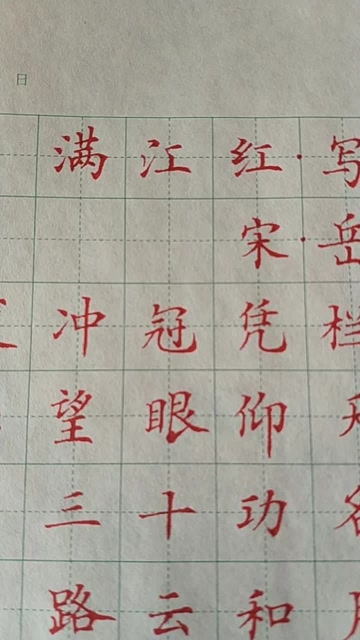 日
满江红·写
宋·岳
冲冠凭栏
望眼仰
三十功
路云和